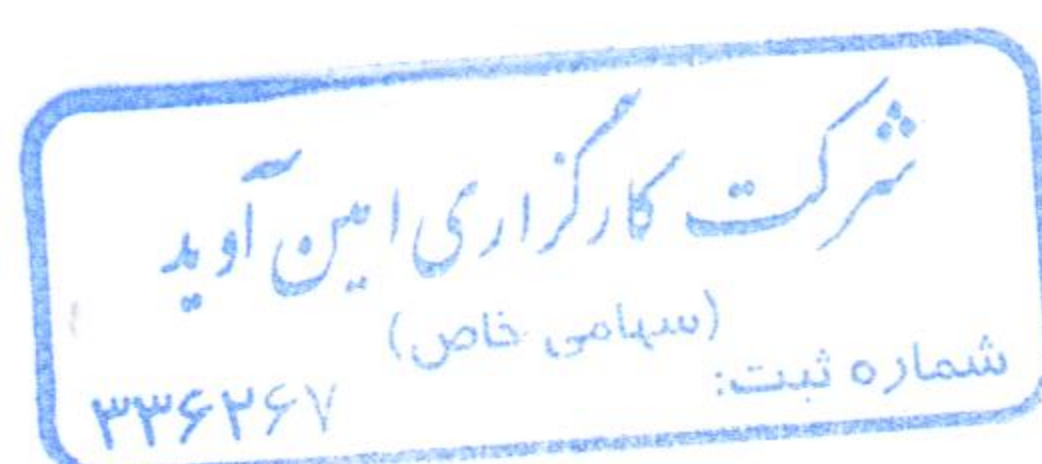 شرکت کارگزاری امین آوید
(سهامی خاص)
شماره ثبت:
۳۳۶۲۶۷